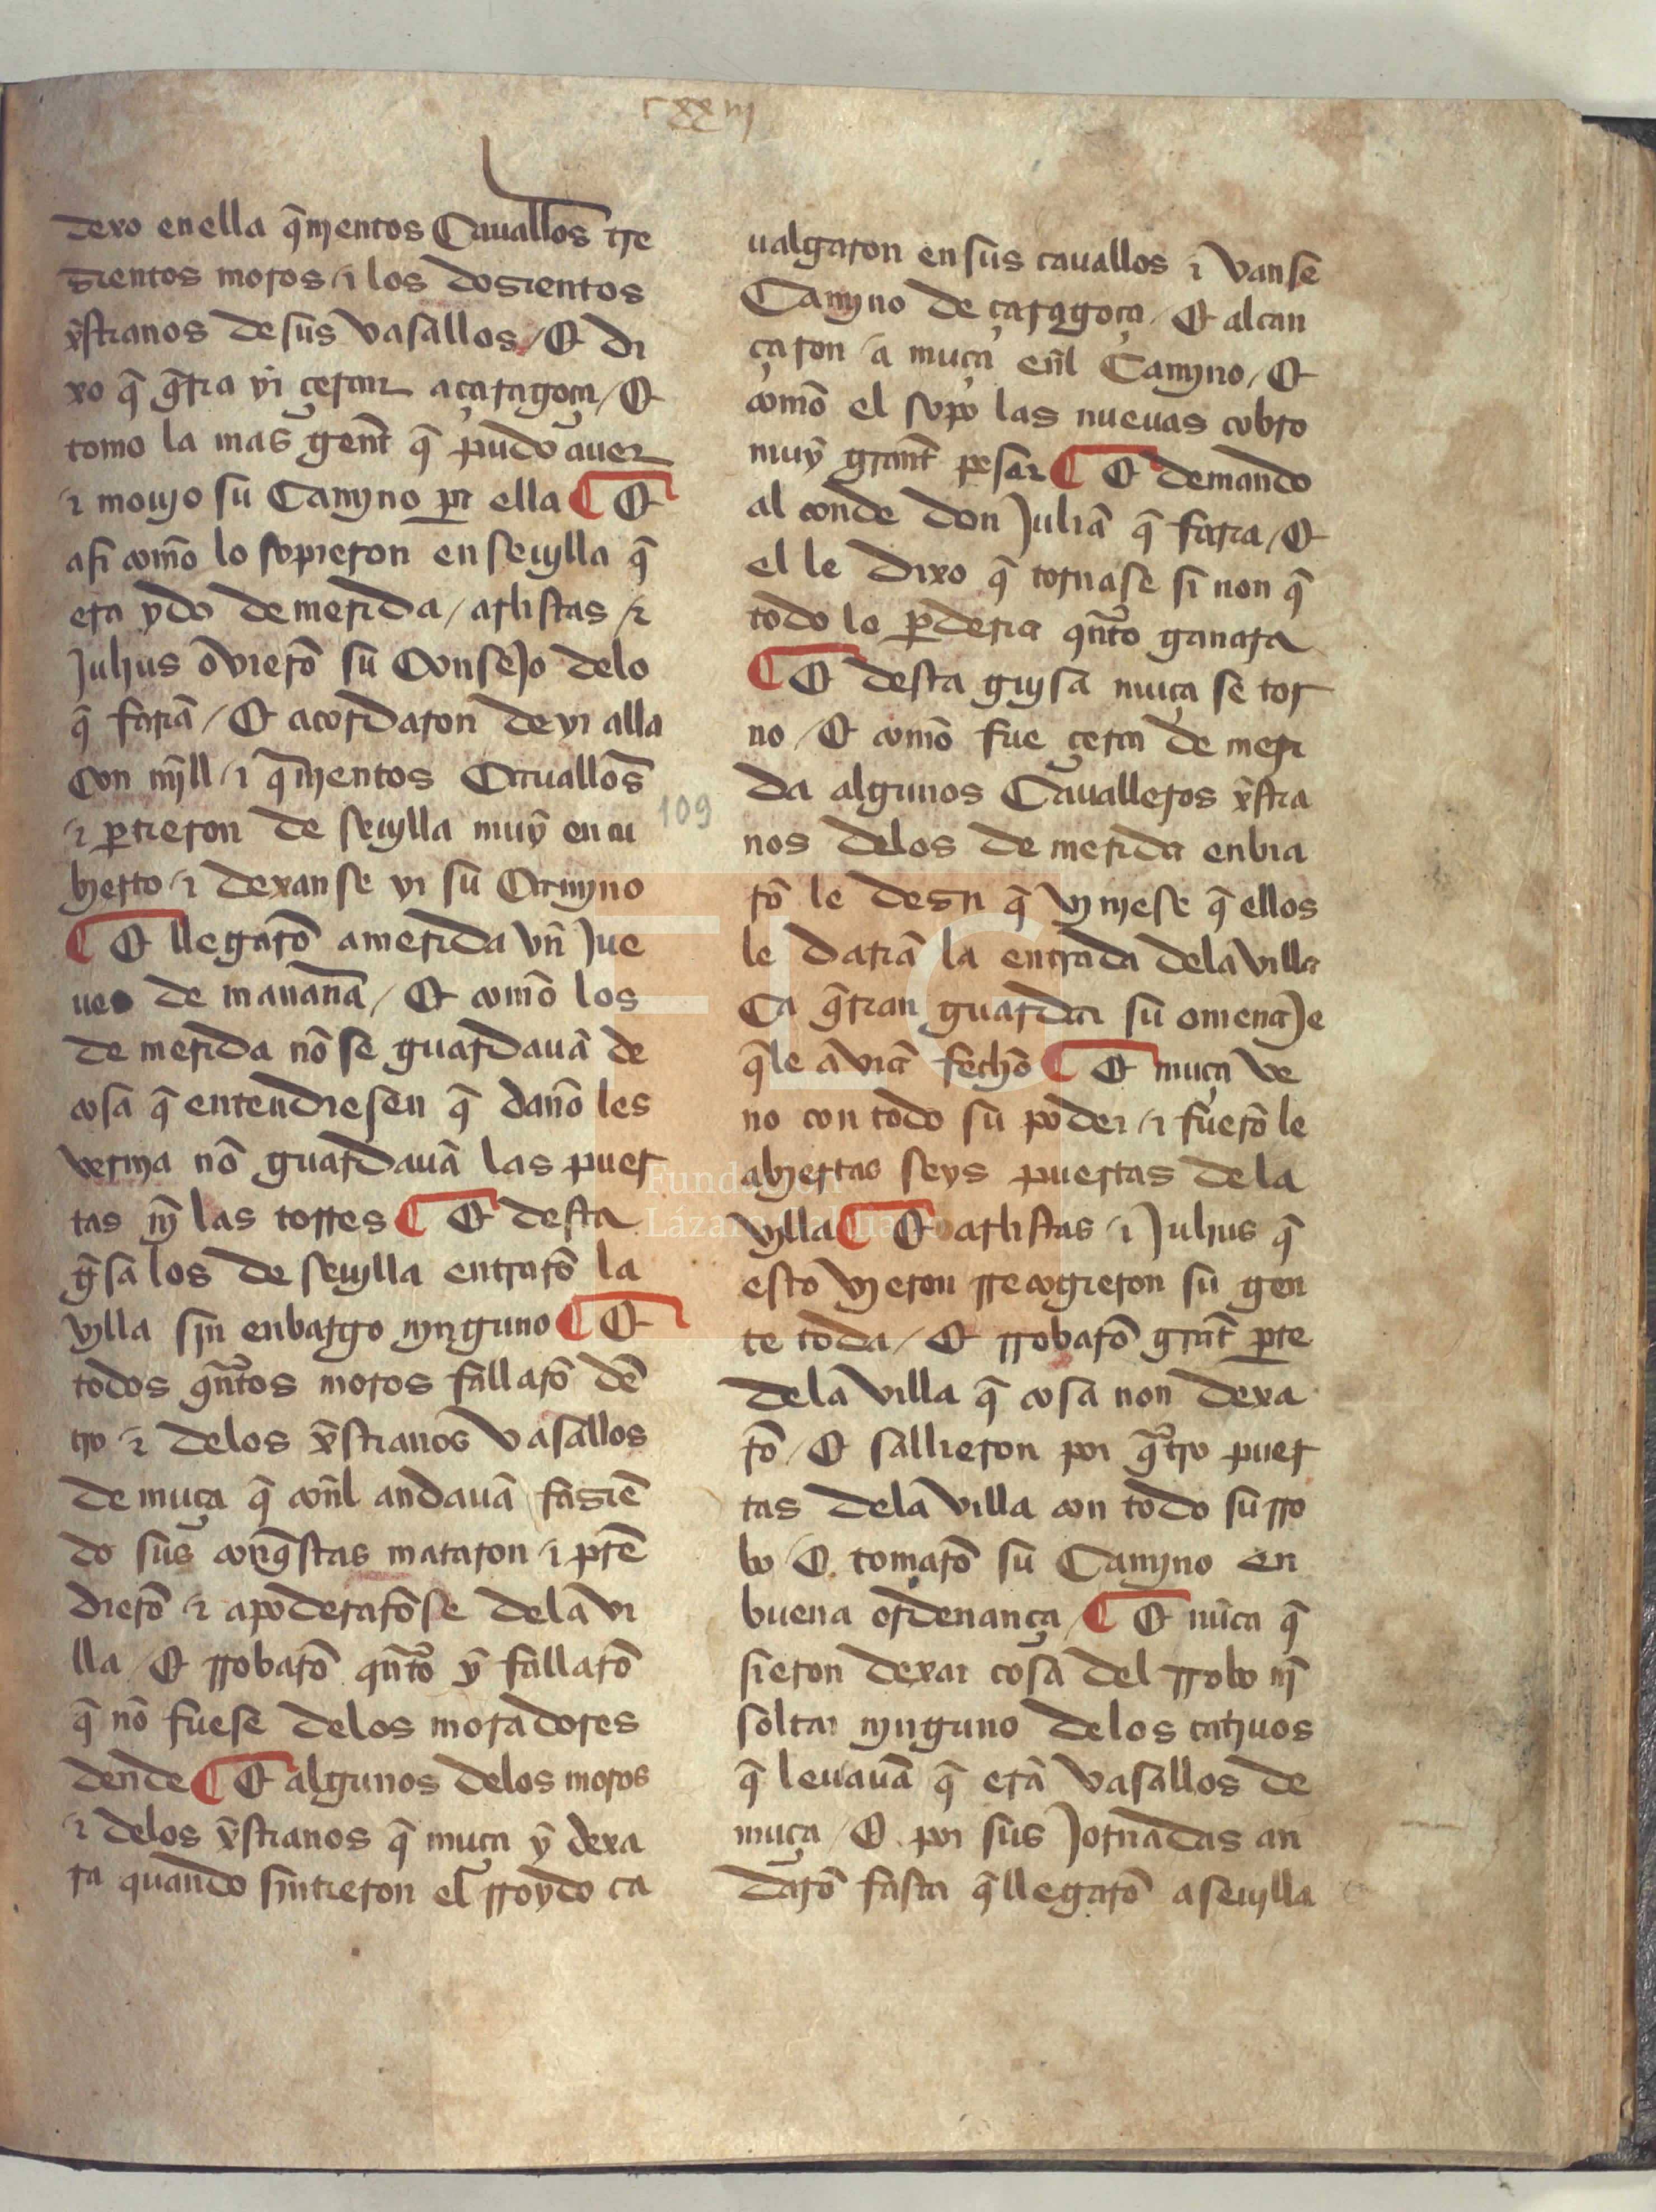 cxxiij
dexo enella q̃nientos Cauallos tre
zientos moros ⁊ los dozientos
xp̃stianos de sus vasallos / Et di
xo q̃ q̃ria yr çercar a çaragoça / Et
tomo la mas gent̃ q̃ pudo auer
⁊ mouyo su Camyno pa ella ¶ Et
asi com̃o lo sopieron en seuylla q̃
era ydo de merida / arlistas ⁊
Julius oũierõ su Consejo delo
q̃ fariã / Et acordaron de yr alla
Con mj̃ll ⁊ q̃nientos Cauallos̃
⁊ ꝑtieron de seuylla muỹ encu
bierto ⁊ dexanse yr su Camyno
¶ Et llegarõ a merida vñ Jue
ues de manana̅ / Et com̃o los
de merida nõ se guardauã de
cosa q̃ entendiesen q̃ dano̅ les
vernja nõ guardauã las puer
tas nj̃ las torres ¶ Et desta
g̃sa los de seuylla entrarõ la
vylla syn enbargo nynguno ¶ Et
todos qñtos moros fallarõ dẽ
tro ⁊ delos xp̃stianos vasallos
de muça q̃ coñl andauã faziẽ
do sus conq̃stas mataron ⁊ prẽ
dierõ ⁊ apoderarõse dela vi
lla / Et rrobarõ qñto ỹ fallarõ
q̃ nõ fuese delos moradores
dende ¶ Et algunos delos moros
⁊ delos xp̃stianos q̃ muça ỹ dexa
ra quando sintieron el rroydo ca
109
ualgaron en sus cauallos ⁊ vanse
Camyno de çaragoça / Et alcan
çaron a muça eñl Camyno / Et
com̃o el sopo las nueuas cobro
muỹ grant̃ pesar ¶ Et demando
al conde don Juliã q̃ faria / Et
el le dixo q̃ tornase si non q̃
todo lo ꝑderia qñto ganara
¶ Et desta guysa muça se tor
no / Et com̃o fue çerca de meri
da algunos Caualleros xp̃stia
nos delos de merida enbia
rõ le dezir q̃ vynyese q̃ ellos
le dariã la entrada dela villa
Ca q̃rian guardar su omenaje
q̃ le auiã fecho̅ ¶ Et muça ve
no con todo su poder ⁊ fuerõ le
abiertas seys puertas de la
vylla ¶ Et arlistas ⁊ Julius q̃
esto vieron rrecogieron su gen
te toda / Et rrobarõ grant̃ ꝑte
dela villa q̃ cosa non dexa
rõ / Et sallieron por q̃tro puer
tas dela villa con todo su rro
bo / Et tomarõ su Camyno en
buena ordenança / ¶ Et nũca q̃
sieron dexar cosa del rrobo nj̃
soltar nynguno delos catiuos
q̃ leuauã q̃ erã vasallos de
muça / Et por sus Jornadas an
darõ fasta q̃ llegarõ a seuylla
Fundación
Lázaro Galdiano
FLG